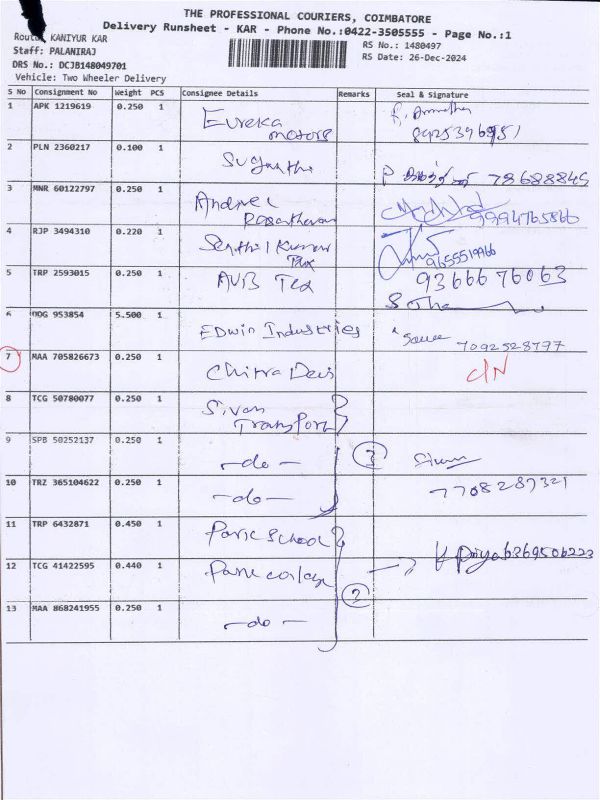 THE PROFESSIONAL COURIERS, COIMBATORE
Delivery Runsheet - KAR - Phone No.:0422-3505555 - Page No.:1
Route: KANIYUR KAR
Staff: PALANIRAJ
DRS No.: DCJB148049701
Vehicle: Two Wheeler Delivery
RS No.: 1480497
RS Date: 26-Dec-2024
S No Consignment No Weight PCS Consignee Details Remarks Seal & Signature
1 APK 1219619 0.250 1 Eureka motors
2 PLN 2360217 0.100 1 Sugantha
3 MNR 60122797 0.250 1 9994765866
4 RJP 3494310 0.220 1 Senthil Kumar
5 TRP 2593015 0.250 1 AVB Tex 9366676063
6 ODG 953854 5.500 1 EDwin Industries 7092528777
7 MAA 705826673 0.250 1 Chitra Devi
8 TCG 50780077 0.250 1 Sivam Transport
9 SPB 50252137 0.250 1 -do-
10 TRZ 365104622 0.250 1 -do- 7708287321
11 TRP 6432871 0.450 1 Park School
12 TCG 41422595 0.440 1 Park college
13 MAA 868241955 0.250 1 -do-